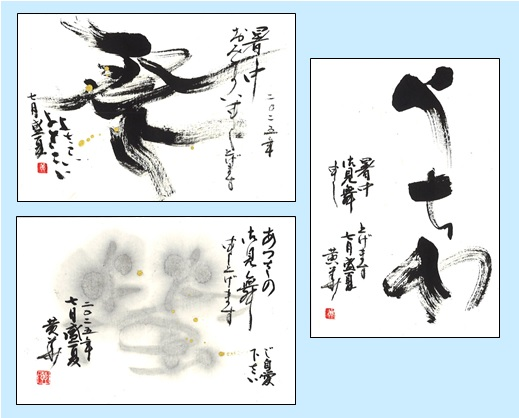 暑中
おみまい申し上げます
二〇二五年
七月盛夏
うちわ
暑中
御見舞
申し
上げます
七月盛夏
黄華
あつさの
御見舞
申し上げます
ご自愛
下さい
二〇二五年
七月盛夏
黄華